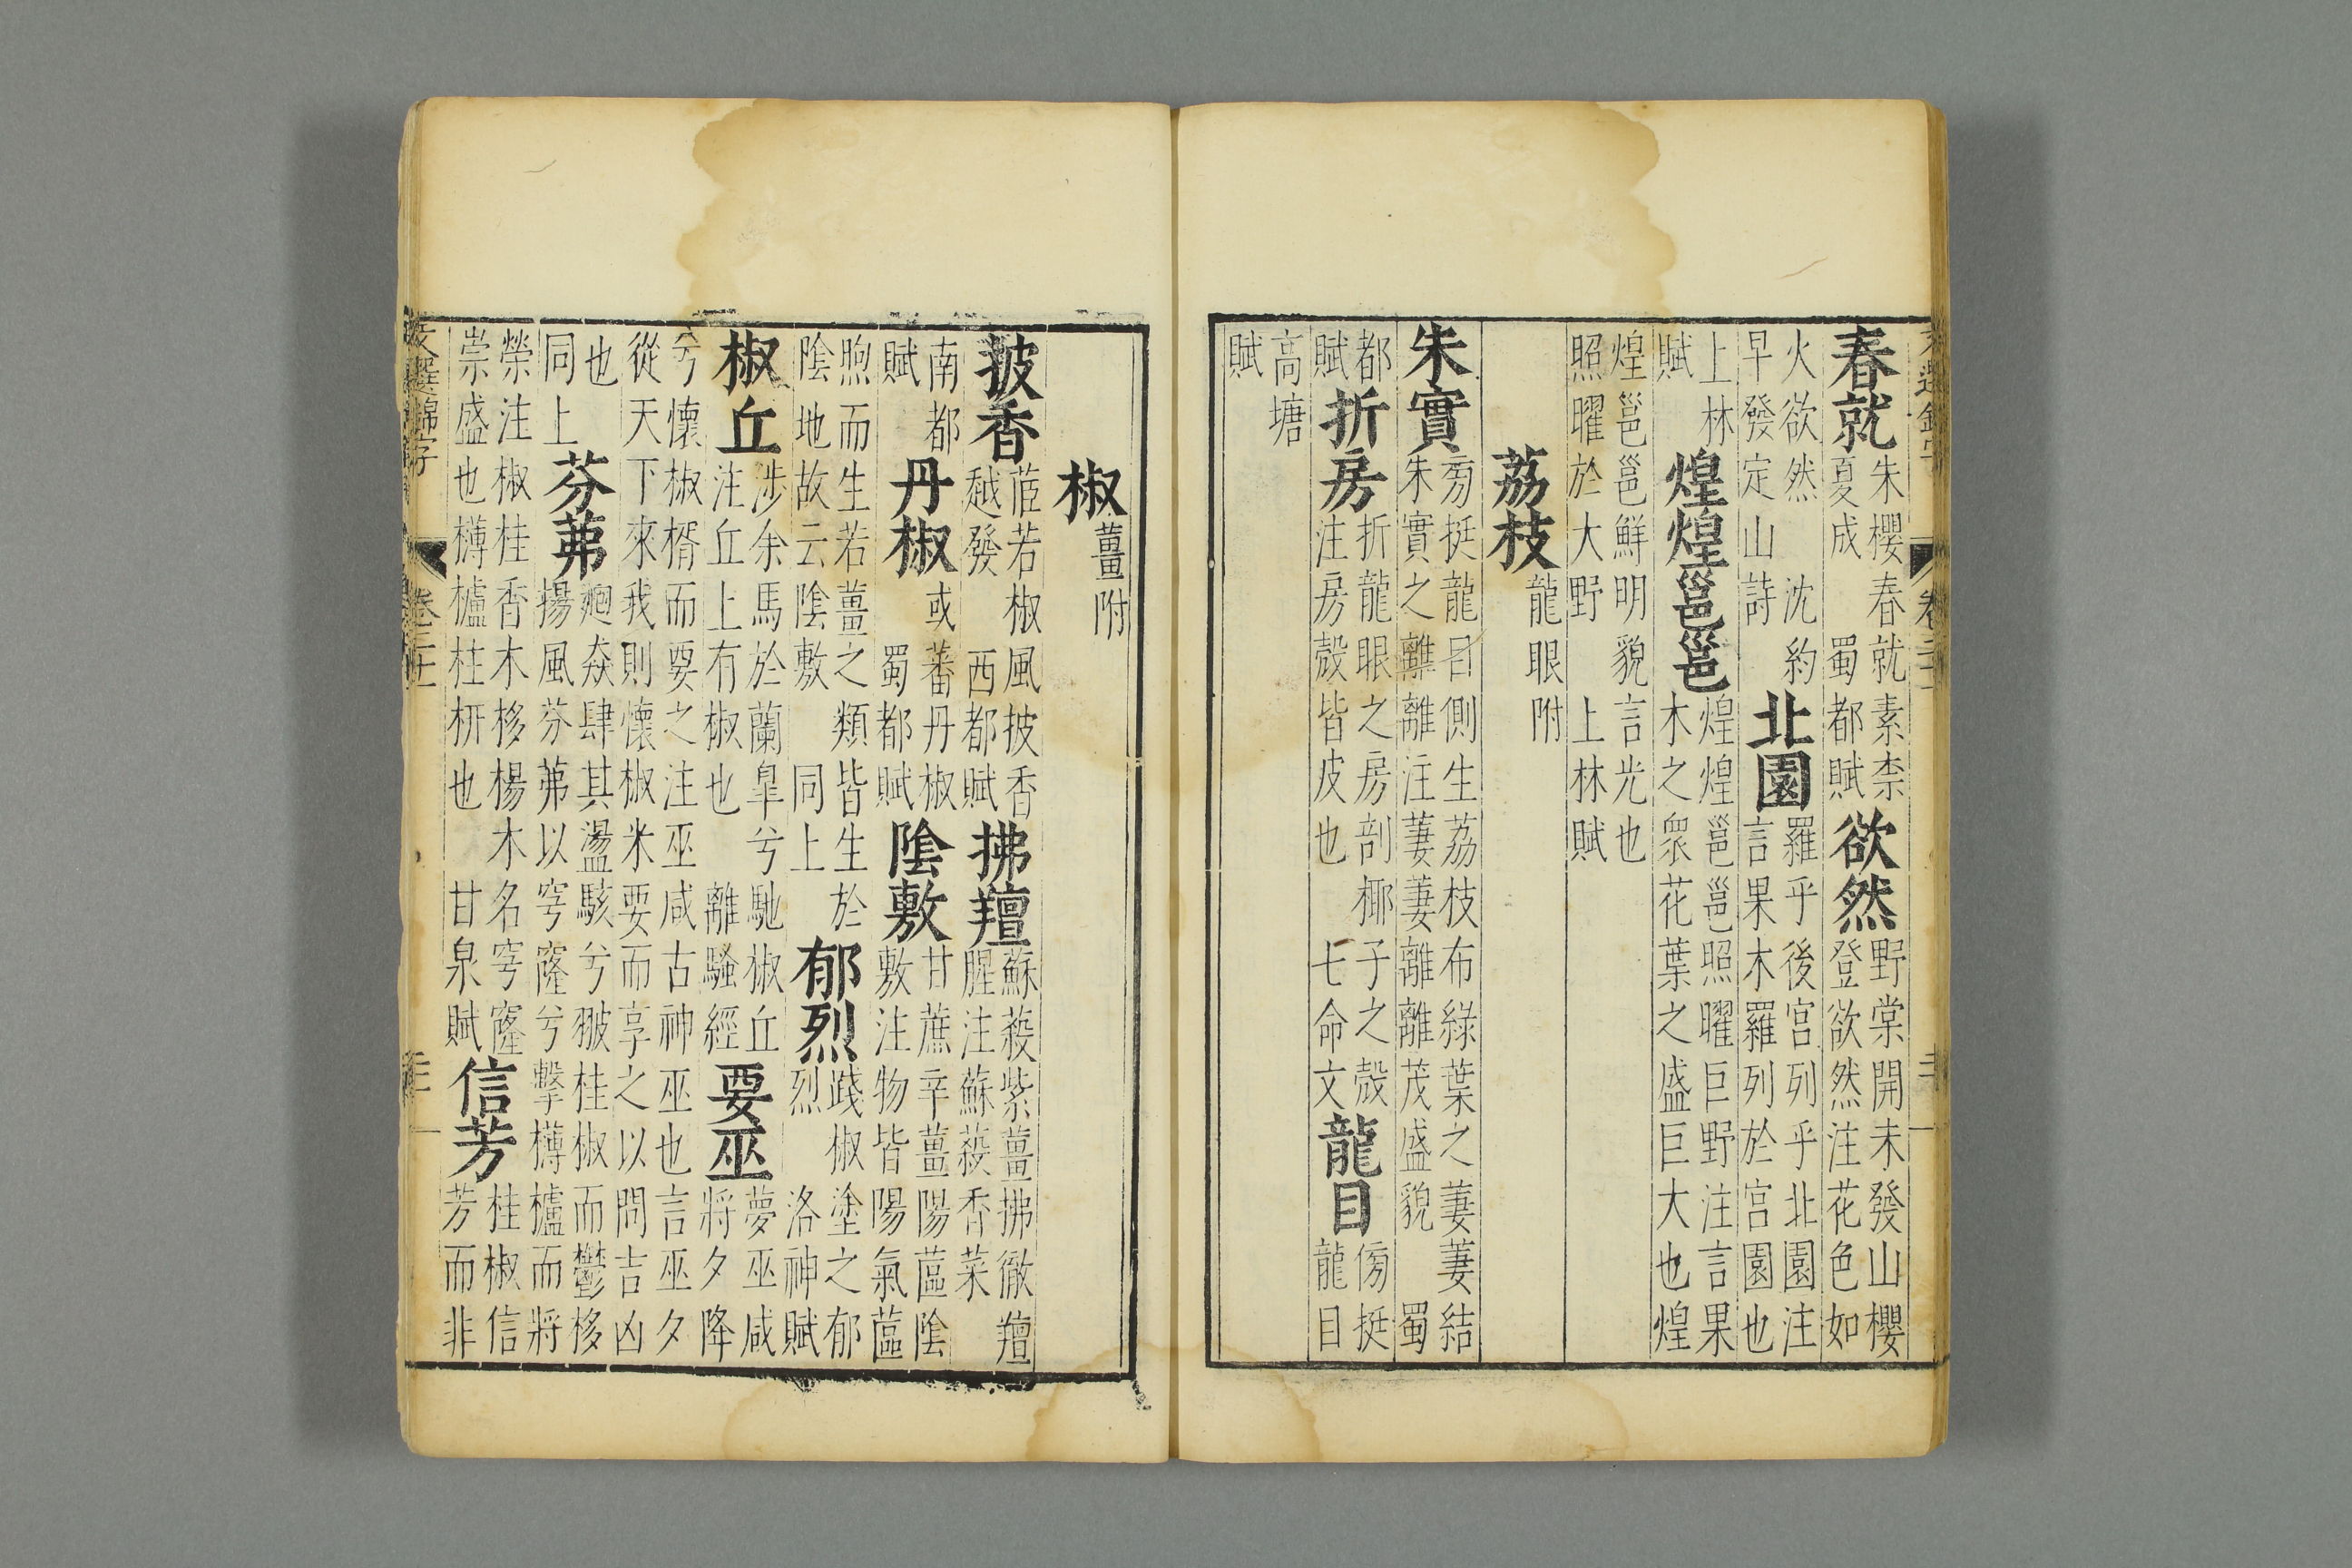 春就朱櫻春就素柰夏成 蜀都賦欲然野棠開未發山櫻登欲然注花色如
火欲然 沈約早發定山詩北園羅乎後宮列乎北園注言果木羅列於宮園也
上林賦煌煌邕邕煌煌邕邕照曜巨野注言果木之衆花葉之盛巨大也煌
煌邕邕鮮明貌言光也照曜於大野 上林賦
荔枝龍眼附
朱實旁挺龍目側生荔枝布綠葉之萋萋結朱實之離離注萋萋離離茂盛貌 蜀
都賦折房折龍眼之房剖椰子之殼注房殼皆皮也 七命文龍目傍挺龍目
高塘賦
椒薑附
披香茝若椒風披香越發 西都賦拂羶蘇蔱紫薑拂徹羶腥注蘇蔱香菜
南都賦丹椒或蕃丹椒 蜀都賦陰敷甘蔗辛薑陽蓲陰敷注物皆陽氣蓲
煦而生若薑之類皆生於陰地故云陰敷 同上郁烈踐椒塗之郁烈 洛神賦
椒丘涉余馬於蘭臯兮馳椒丘注丘上有椒也 離騷經要巫夢巫咸將夕降
兮懷椒糈而要之注巫咸古神巫也言巫夕從天下來我則懷椒米要而享之以問吉凶
也 同上芬茀廻猋肆其盪駭兮翍桂椒而鬱栘揚風芬茀以穹窿兮擊欂櫨而將
榮注椒桂香木栘楊木名穹窿崇盛也欂櫨柱枅也 甘泉賦信芳桂椒信芳而非
文選錦字 卷二十一